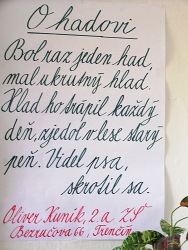 O hadovi
Bol raz jeden had,
mal ukrutný hlad.
Hlad ho trápil každý
deň, zjedol v lese starý
peň. Videl psa,
skrotil sa.
Oliver Kunik, 2. a ZŠ
Bezručova 66, Trenčín